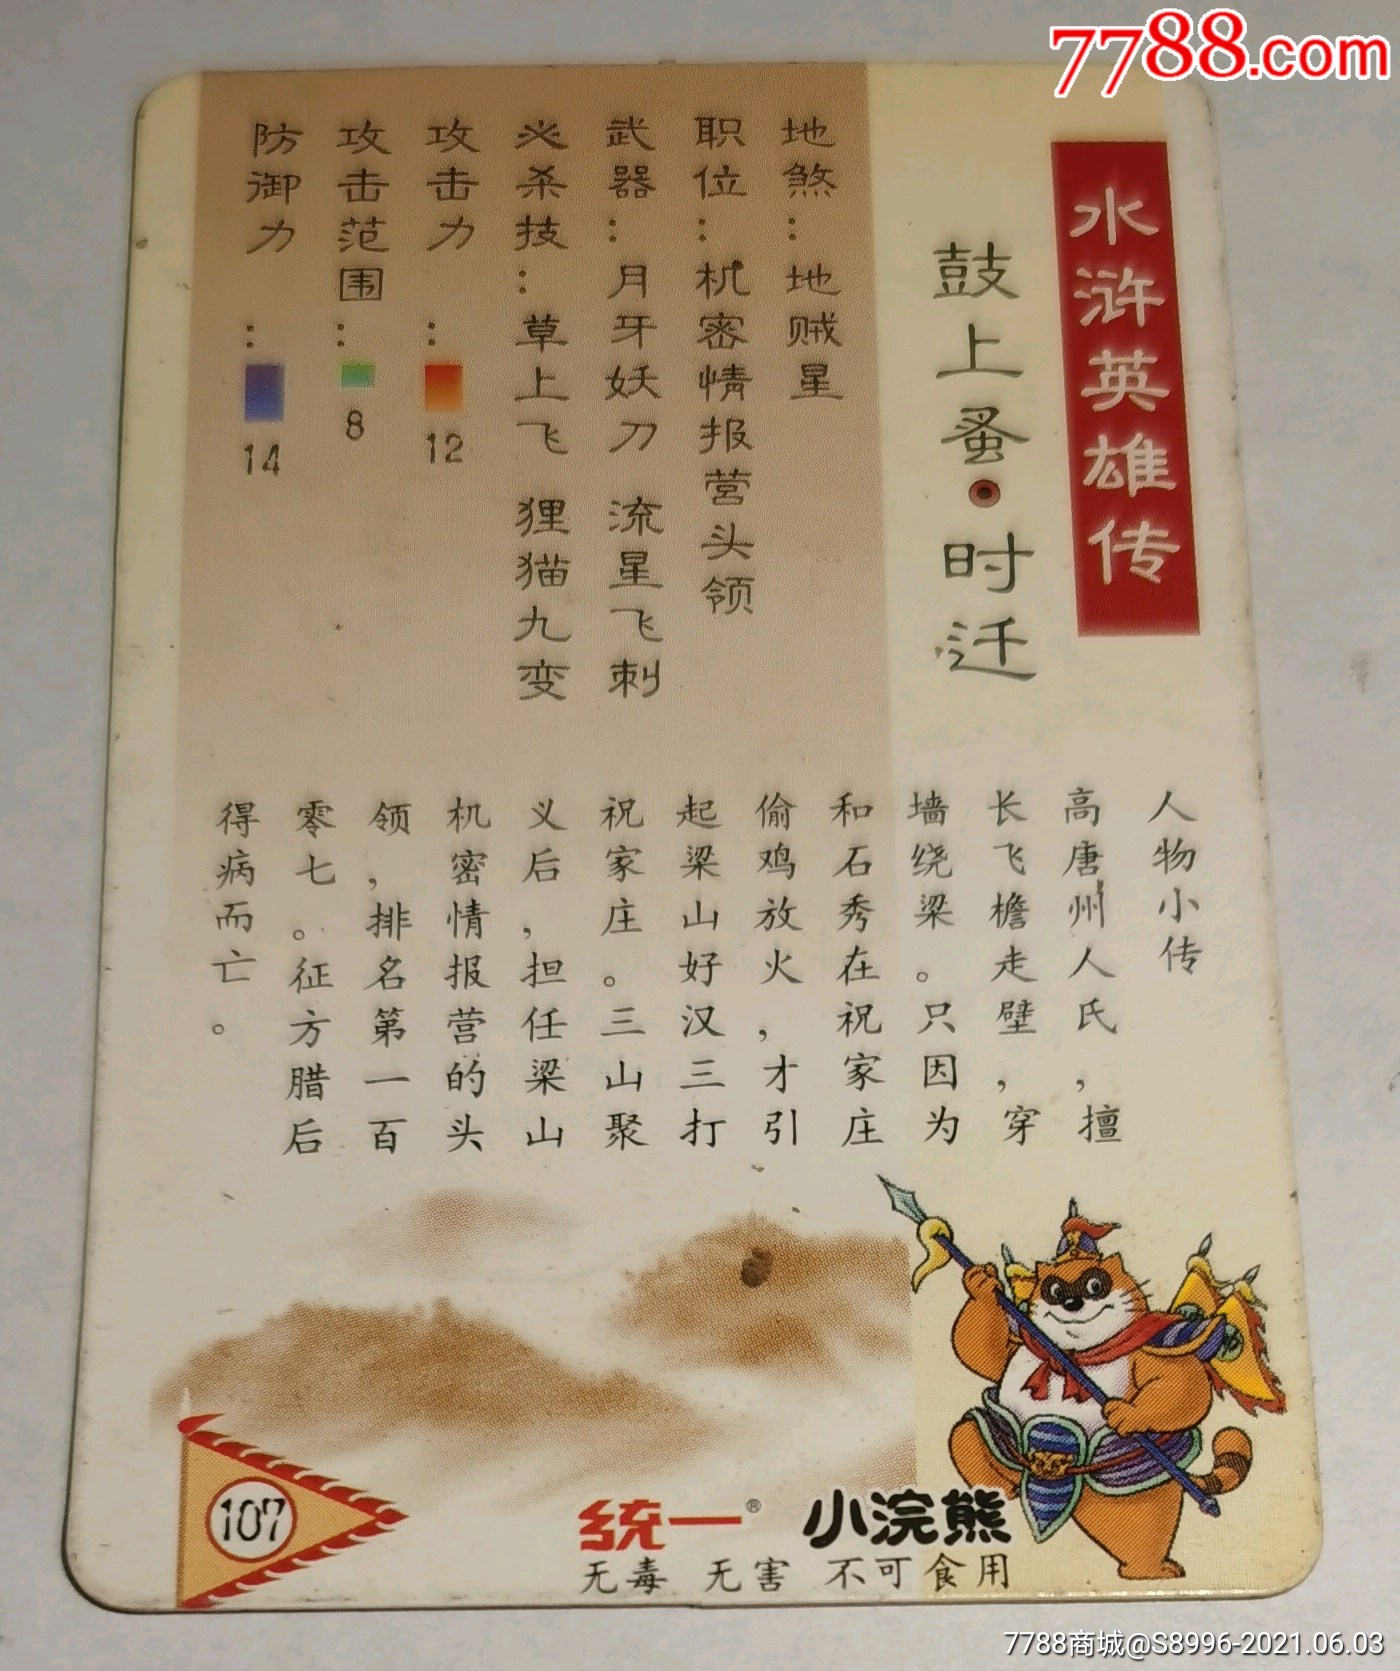 7788.com
水浒英雄传
鼓上蚤·时迁
地煞：地贼星
职位：机密情报营头领
武器：月牙妖刀 流星飞刺
必杀技：草上飞 狸猫九变
攻击力：12
攻击范围：8
防御力：14
人物小传
高唐州人氏，擅
长飞檐走壁，穿
墙绕梁。只因为
和石秀在祝家庄
偷鸡放火，才引
起梁山好汉三打
祝家庄。三山聚
义后，担任梁山
机密情报营的头
领，排名第一百
零七。征方腊后
得病而亡。
107
统一® 小浣熊
无毒 无害 不可食用
7788商城@S8996-2021.06.03